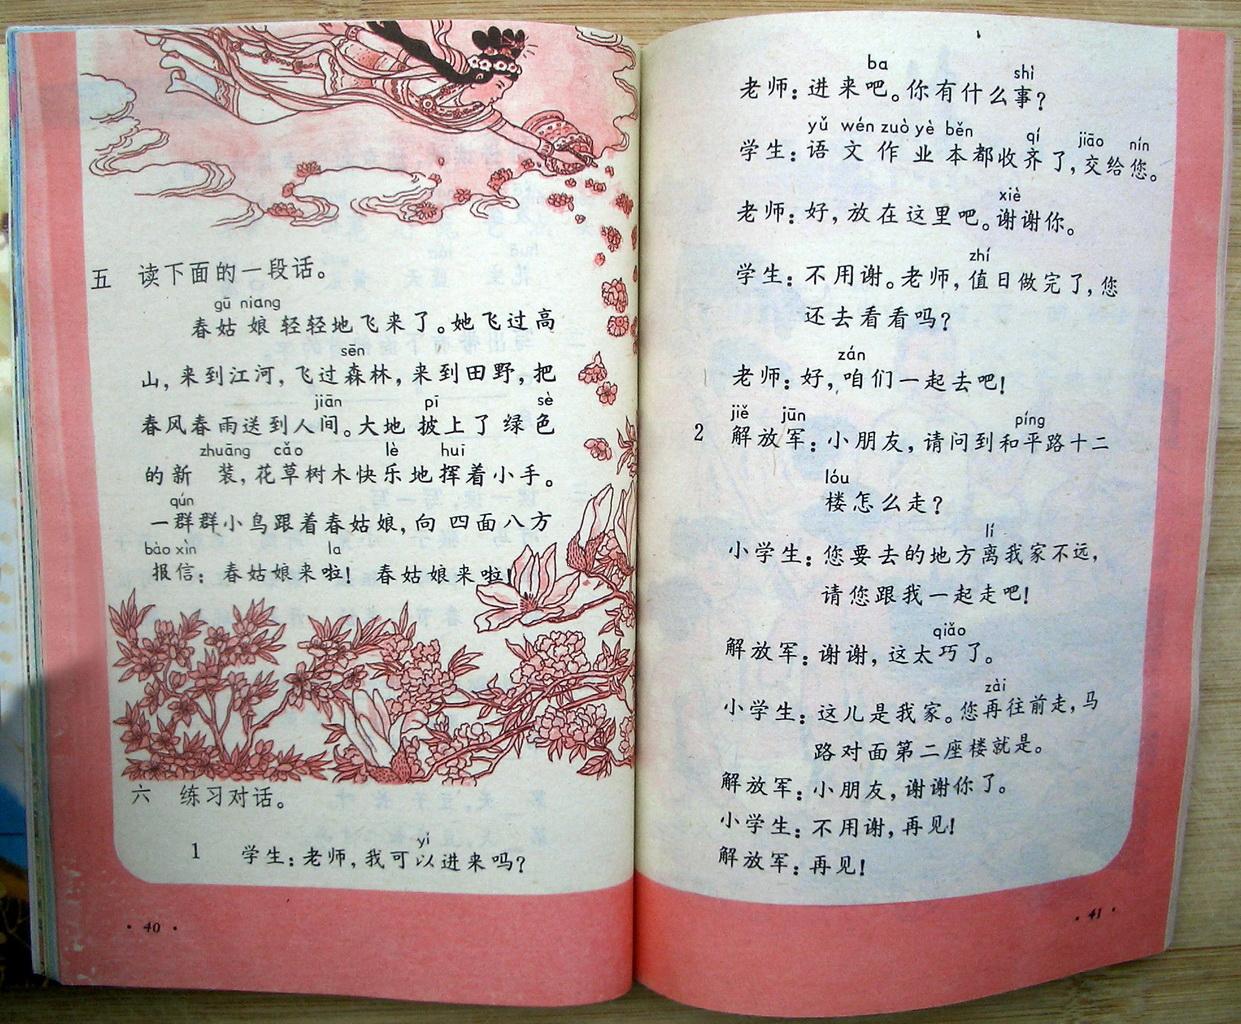 五 读下面的一段话。
gū niang
春姑娘轻轻地飞来了。她飞过高
sēn
山，来到江河，飞过森林，来到田野，把
jiān pī sè
春风春雨送到人间。大地披上了绿色
zhuāng cǎo lè huī
的新装，花草树木快乐地挥着小手。
qún
一群群小鸟跟着春姑娘，向四面八方
bào xìn la
报信：春姑娘来啦！春姑娘来啦！
六 练习对话。
yǐ
1 学生：老师，我可以进来吗？
·40·
ba shì
老师：进来吧。你有什么事？
yǔ wén zuò yè běn qí jiāo nín
学生：语文作业本都收齐了，交给您。
xiè
老师：好，放在这里吧。谢谢你。
zhí
学生：不用谢。老师，值日做完了，您
还去看看吗？
zán
老师：好，咱们一起去吧！
jiě jūn píng
2 解放军：小朋友，请问到和平路十二
lóu
楼怎么走？
lí
小学生：您要去的地方离我家不远，
请您跟我一起走吧！
qiǎo
解放军：谢谢，这太巧了。
zài
小学生：这儿是我家。您再往前走，马
路对面第二座楼就是。
解放军：小朋友，谢谢你了。
小学生：不用谢，再见！
解放军：再见！
·41·